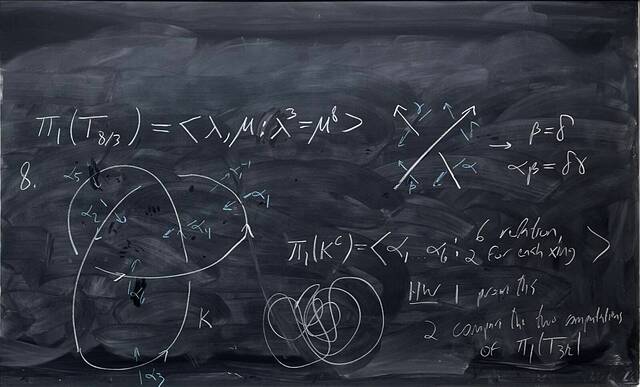 π₁(T₈/₃) = <λ, μ : λ³ = μ⁸>
γ δ β α → β = δ
αβ = δγ
8.
α₅ α₂ α₄ α₁
π₁(Kᶜ) = <α₁ .. α₆ : 6 relation, 2 for each xing>
K
HW 1 prove this
2 compare the two computations
α₃
of π₁(T